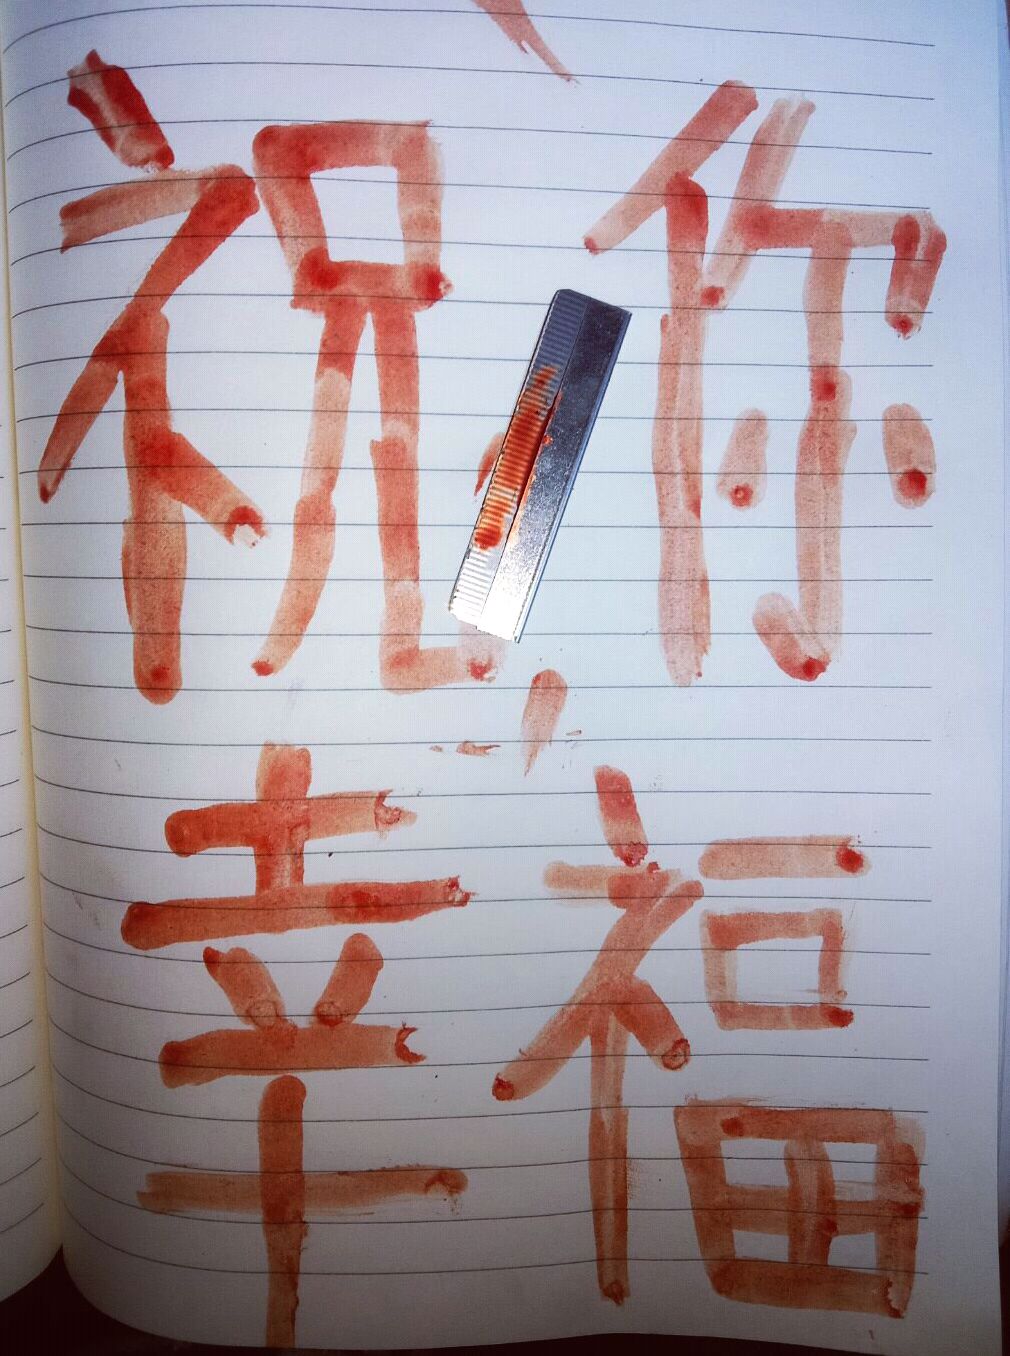 祝你
幸福